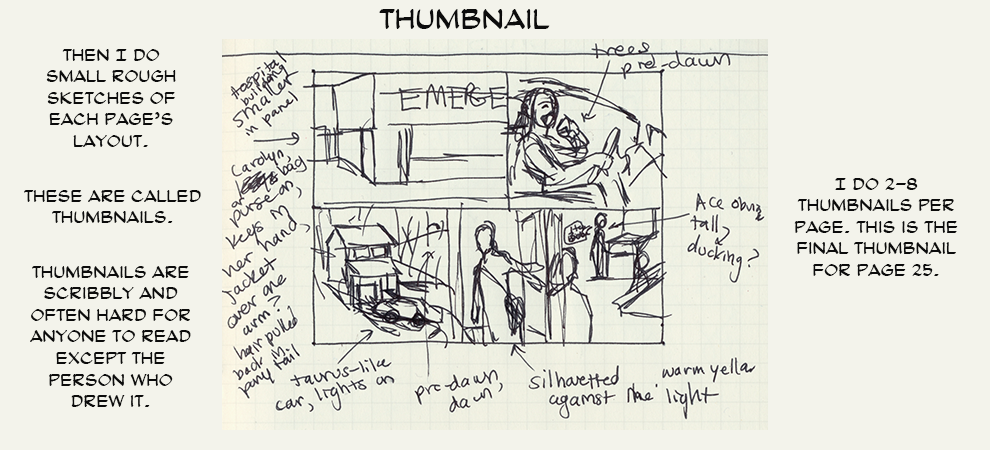 THUMBNAIL
THEN I DO
SMALL ROUGH
SKETCHES OF
EACH PAGE'S
LAYOUT.
THESE ARE CALLED
THUMBNAILS.
THUMBNAILS ARE
SCRIBBLY AND
OFTEN HARD FOR
ANYONE TO READ
EXCEPT THE
PERSON WHO
DREW IT.
hospital
building
smaller
in panel
Carolyn,
bag
purse on,
keys in
her hand,
jacket
over one
arm?
hair pulled
back in
pony tail
trees
pre-dawn
EMERGE
Ace obvs
tall,
ducking?
taurus-like
car, lights on
pre-dawn,
dawn,
silhouetted
against the
warm yellar
light
I DO 2-8
THUMBNAILS PER
PAGE. THIS IS THE
FINAL THUMBNAIL
FOR PAGE 25.